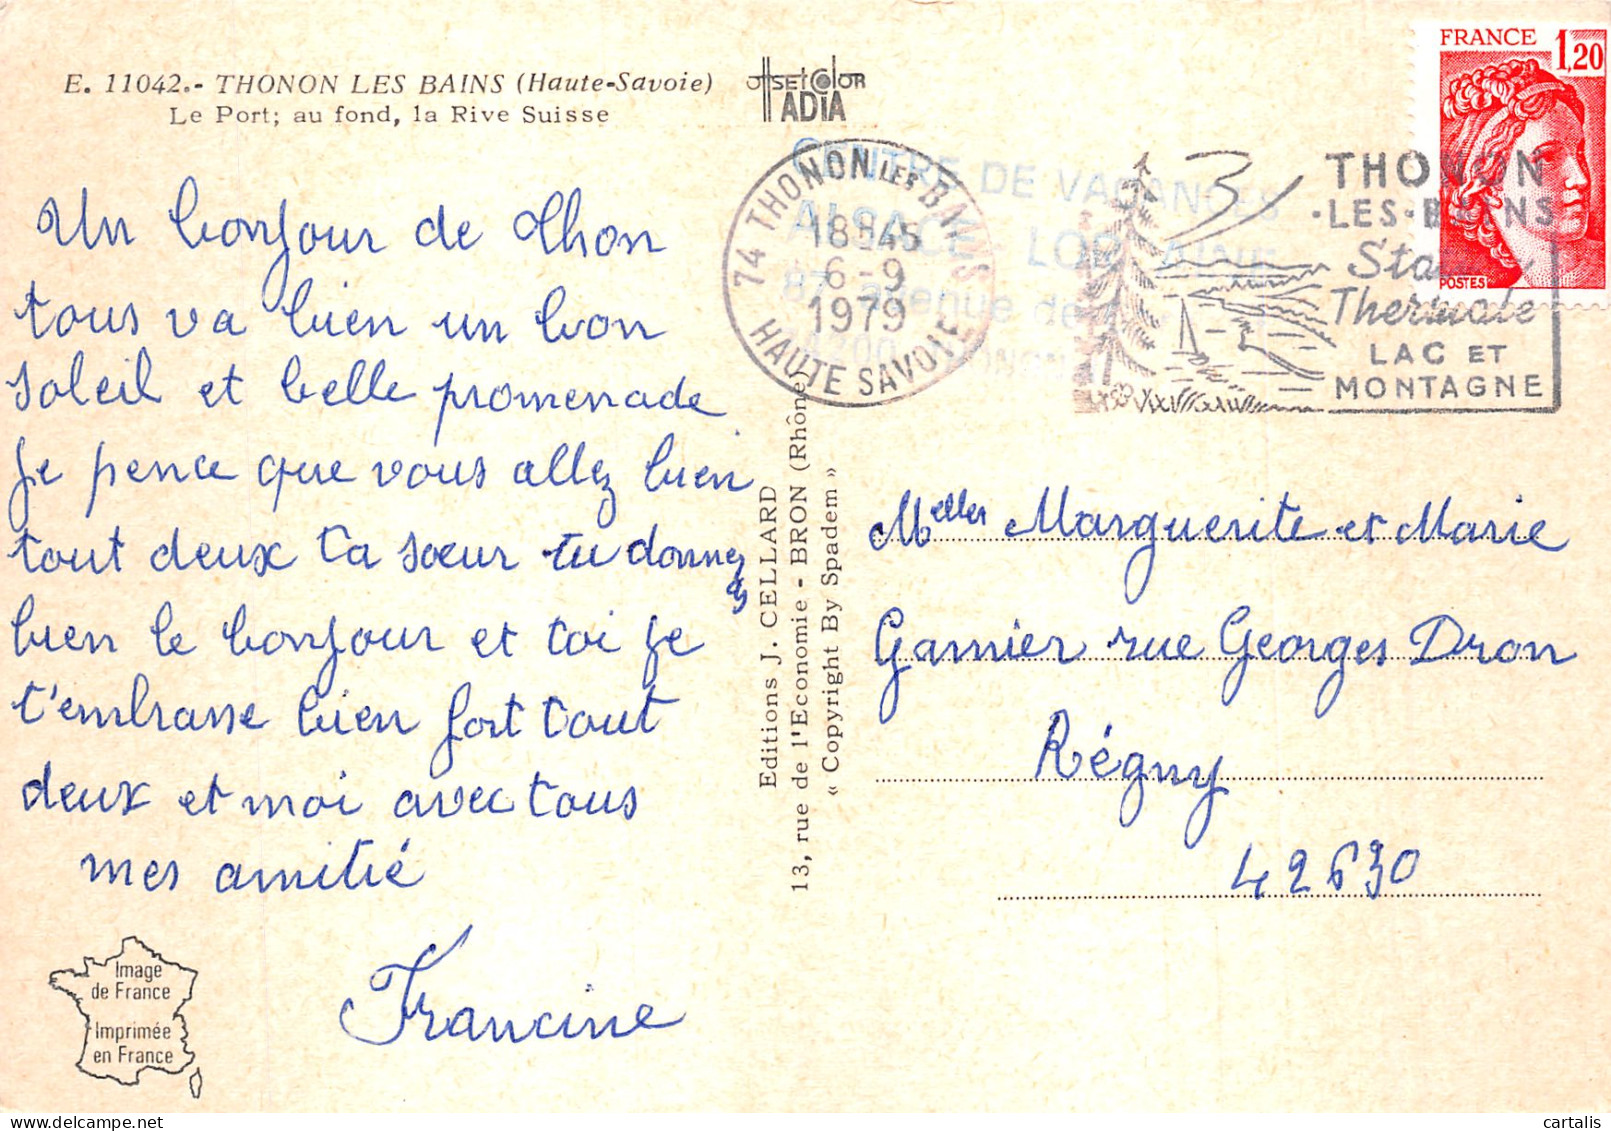 E. 11042.- THONON LES BAINS (Haute-Savoie)
Le Port; au fond, la Rive Suisse
OffSEtColOR
ADIA
FRANCE 1,20
POSTES
CENTRE DE VACANCES
ALSACE - LOR
87 avenue de
74 THONON LES BAINS
18H45
6-9
1979
HAUTE SAVOIE
THONON
·LES·BAINS
Thermale
LAC ET
MONTAGNE
Un bonjour de Thon
tous va bien un bon
soleil et belle promenade
Je pence que vous allez bien
tout deux Ta soeur tu donnez
bien le bonjour et toi je
t'embrasse bien fort tout
deux et moi avec tous
mes amitié
Francine
Melles Marguerite et Marie
Garnier rue Georges Dron
Régny
42630
Editions J. CELLARD
13, rue de l'Economie - BRON (Rhône)
« Copyright By Spadem »
Image
de France
Imprimée
en France
cartalis